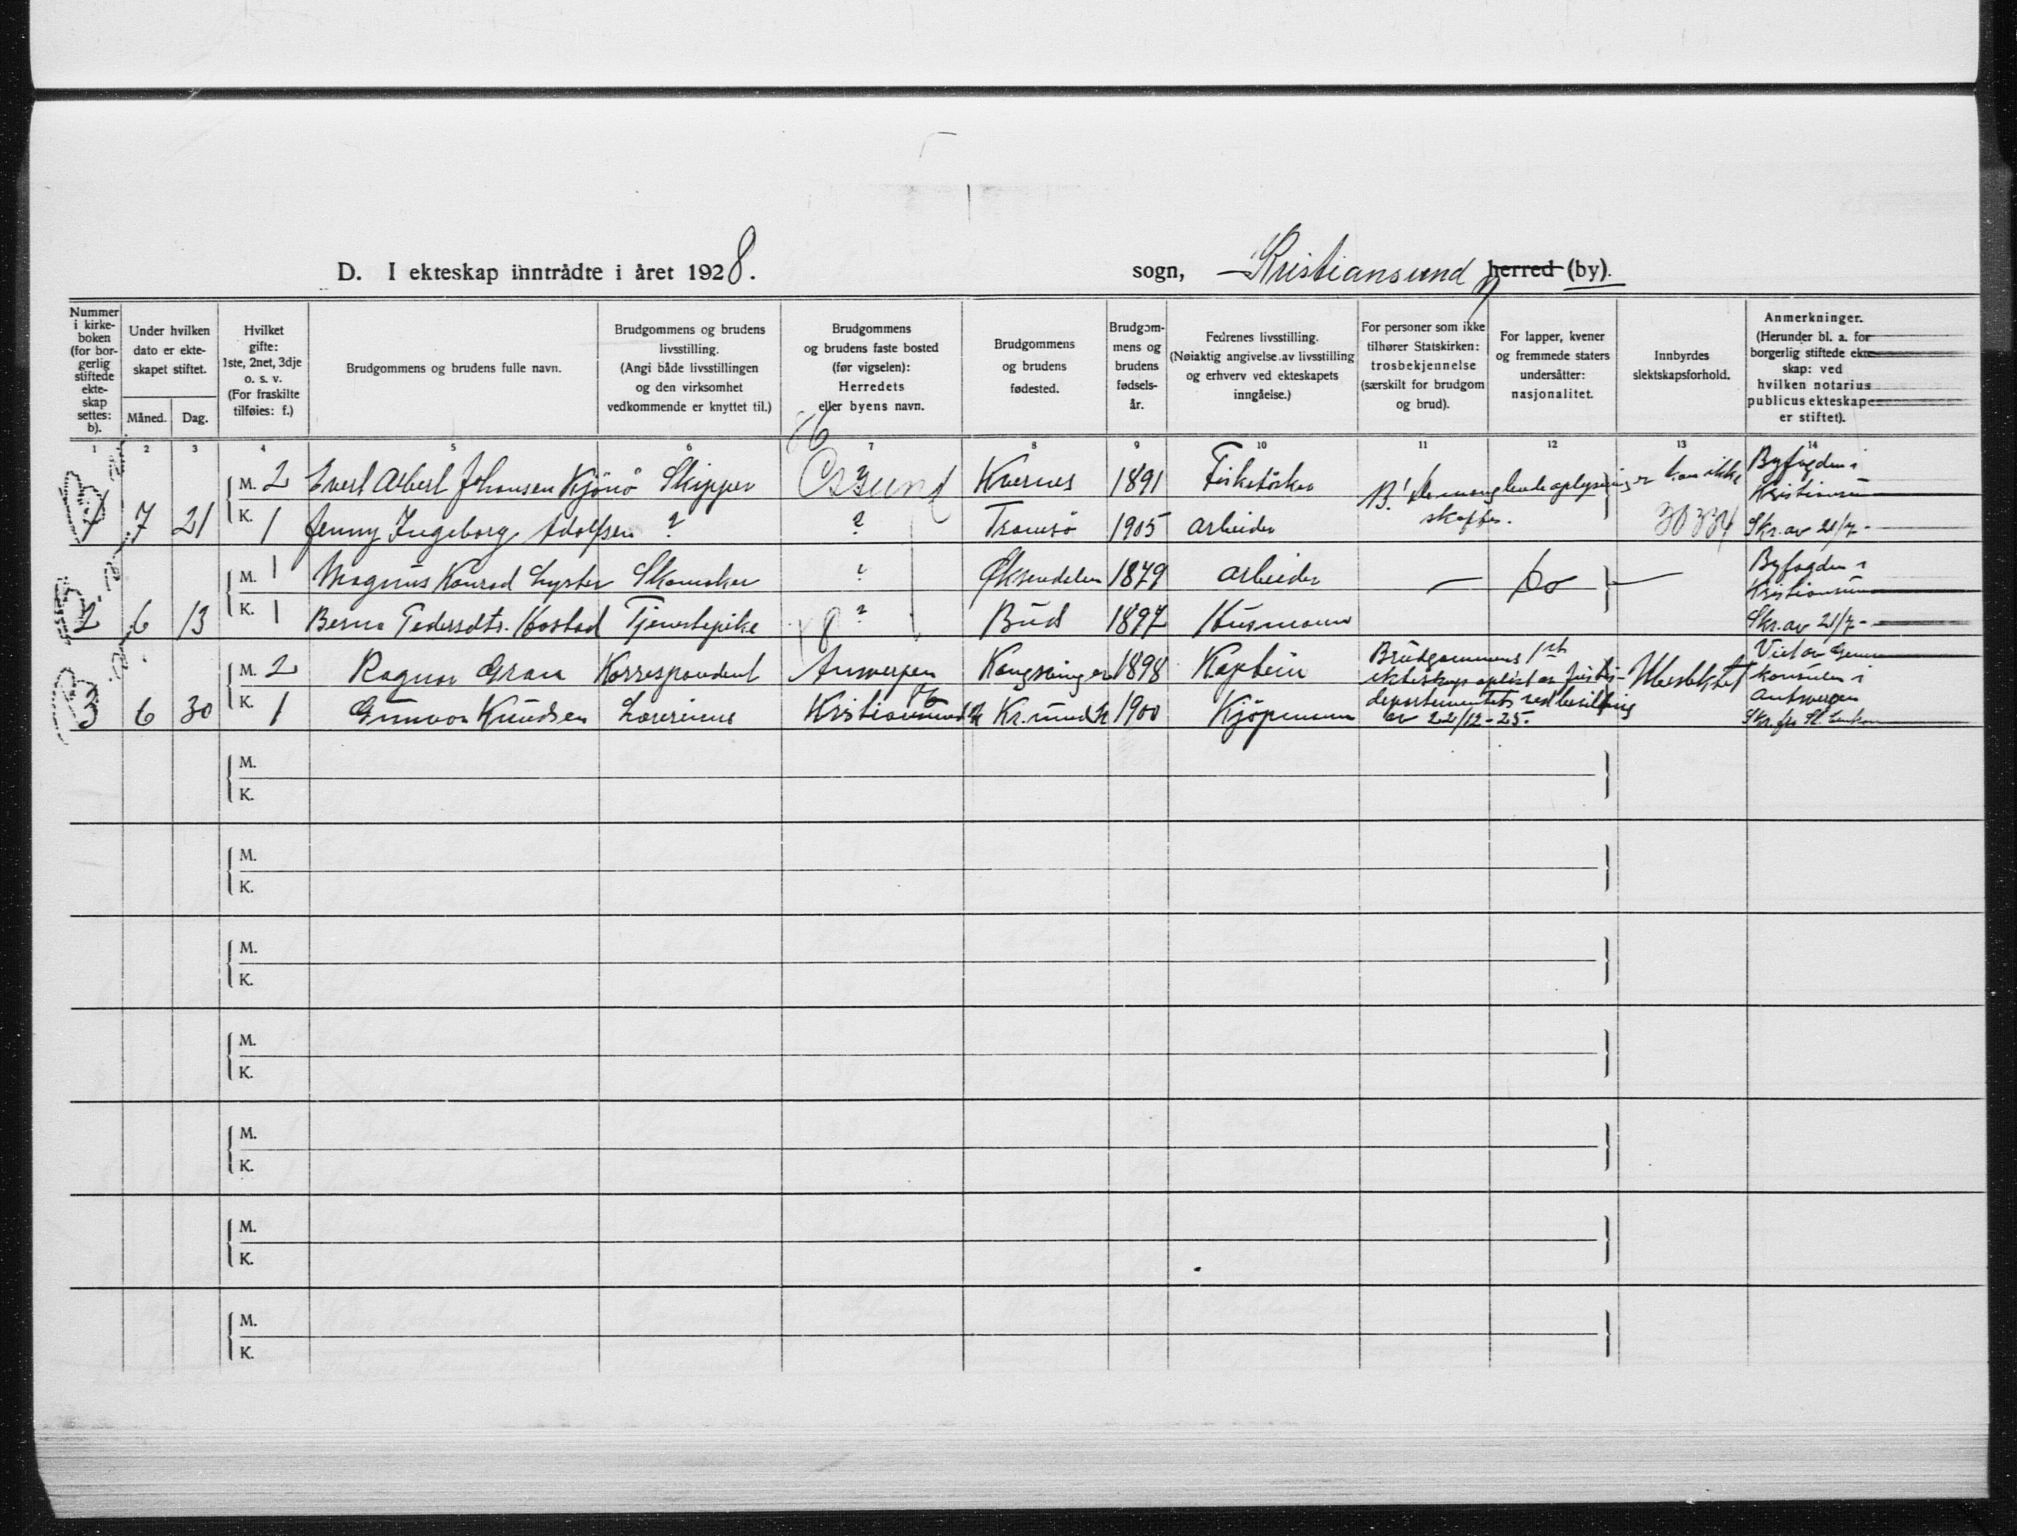 D. I ekteskap inntrådte i året 1928. sogn, Kristiansund herred (by).
Nummer i kirke-boken (for bor-gerlig stiftede ekte-skap settes: b).
Under hvilken dato er ekte-skapet stiftet.
Måned. Dag.
Hvilket gifte: 1ste, 2net, 3dje o. s. v. (For fraskilte tilføies: f.)
Brudgommens og brudens fulle navn.
Brudgommens og brudens livsstilling. (Angi både livsstillingen og den virksomhet vedkommende er knyttet til.)
Brudgommens og brudens faste bosted (før vigselen): Herredets eller byens navn.
Brudgommens og brudens fødested.
Brudgom-mens og brudens fødsels-år.
Fedrenes livsstilling. (Nøiaktig angivelse av livsstilling og erhverv ved ekteskapets inngåelse.)
For personer som ikke tilhører Statskirken: trosbekjennelse (særskilt for brudgom og brud).
For lapper, kvener og fremmede staters undersåtter: nasjonalitet.
Innbyrdes slektskapsforhold.
Anmerkninger. (Herunder bl. a. for borgerlig stiftede ekte-skap: ved hvilken notarius publicus ekteskapet er stiftet).
1 2 3 4 5 6 7 8 9 10 11 12 13 14
B 1 7 21
M. 2 Evert Albert Johansen Kjönö Skipper ? Kvernes 1891 Byfogden i Kristiansun
K. 1 Jenny Ingeborg Adolfsen ? ? Tromsö 1905 Arbeider 30334 Skr. av 21/7-
B 2 6 13
M. 1 Magnus Konrad Lyster Skomaker ? Øksendalen 1879 Arbeider — — Byfogden i Kristiansun
K. 1 Berna Pedersdtr. Tjenestepike ? Bud 1897 Husmann Skr. av 21/7-
B 3 6 30
M. 2 Ragnar Gran Korrespondent Antwerpen Kongsvinger 1898 Kaptein Brudgommens 1ste ekteskap oplöst Justis- Ubeslektet konsulen i Antwerpen
K. 1 Gunvor Knudsen Lærerinne Kristiansund Kr.sund 1900 Kjöpmann departementets av 22/12-25.
M.
K.
M.
K.
M.
K.
M.
K.
M.
K.
M.
K.
M.
K.